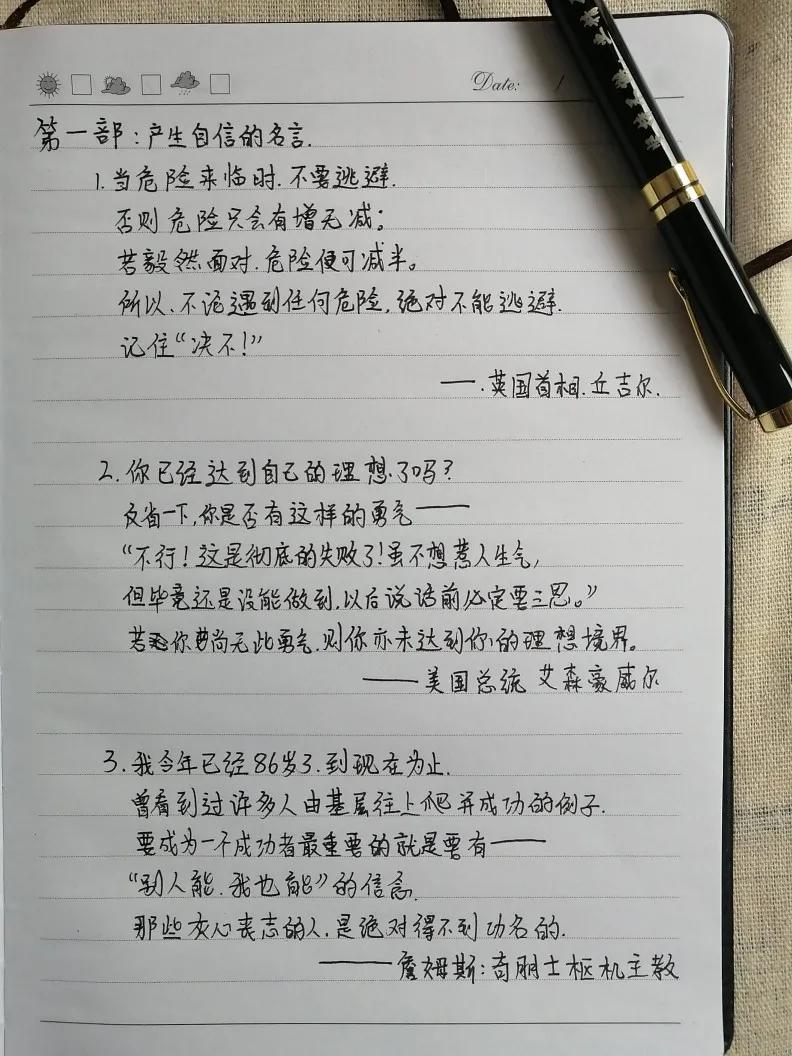 Date: /
第一部:产生自信的名言.
1.当危险来临时.不要逃避.
否则危险只会有增无减;
若毅然面对.危险便可减半。
所以.不论遇到任何危险,绝对不能逃避.
记住“决不!”
——.英国首相.丘吉尔.
2.你已经达到自己的理想.了吗?
反省一下,你是否有这样的勇气——
“不行!这是彻底的失败了!虽不想惹人生气,
但毕竟还是没能做到,以后说话前必定要三思。”
若你尚无此勇气.则你亦未达到你的理想境界。
——美国总统 艾森豪威尔
3.我今年已经86岁了.到现在为止.
曾看到过许多人由基层往上爬并成功的例子.
要成为一个成功者最重要的就是要有——
“别人能.我也能”的信念.
那些灰心丧志的人.是绝对得不到功名的.
——詹姆斯:奇朋士枢机主教